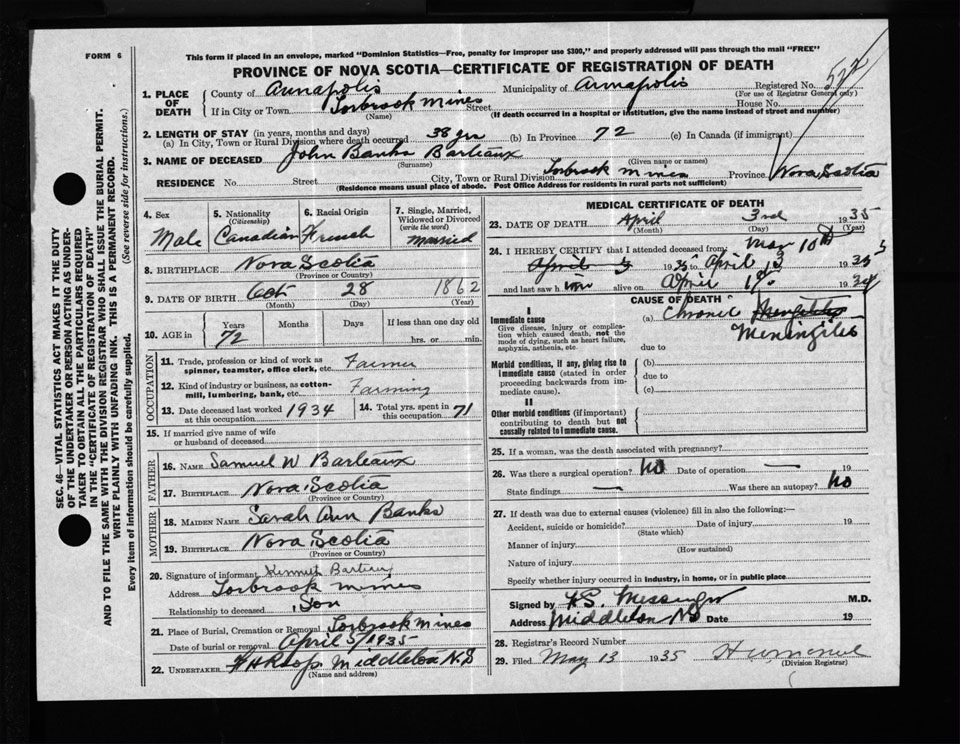 FORM 6
This form if placed in an envelope, marked "Dominion Statistics—Free, penalty for improper use $300," and properly addressed will pass through the mail "FREE"
PROVINCE OF NOVA SCOTIA—CERTIFICATE OF REGISTRATION OF DEATH
1. PLACE OF DEATH
County of Annapolis Municipality of Annapolis Registered No. 522
(For use of Registrar General only)
If in City or Town Torbrook Mines Street House No.
(Name) (If death occurred in a hospital or institution, give the name instead of street and number)
2. LENGTH OF STAY (in years, months and days)
(a) In City, Town or Rural Division where death occurred 38 yrs (b) In Province 72 (c) In Canada (if immigrant)
3. NAME OF DECEASED John Banks Barteaux
(Surname) (Given name or names)
RESIDENCE No. Street City, Town or Rural Division Torbrook Mines Province Nova Scotia
(Residence means usual place of abode. Post Office Address for residents in rural parts not sufficient)
SEC. 46—VITAL STATISTICS ACT MAKES IT THE DUTY
OF THE UNDERTAKER OR PERSON ACTING AS UNDER-
TAKER TO OBTAIN ALL THE PARTICULARS REQUIRED
IN THE "CERTIFICATE OF REGISTRATION OF DEATH"
AND TO FILE THE SAME WITH THE DIVISION REGISTRAR WHO SHALL ISSUE THE BURIAL PERMIT.
WRITE PLAINLY WITH UNFADING INK. THIS IS A PERMANENT RECORD.
Every item of information should be carefully supplied. (See reverse side for instructions.)
4. Sex
Male
5. Nationality
(Citizenship)
Canadian
6. Racial Origin
French
7. Single, Married, Widowed or Divorced
(write the word)
Married
8. BIRTHPLACE Nova Scotia
(Province or Country)
9. DATE OF BIRTH Oct 28 1862
(Month) (Day) (Year)
10. AGE in Years Months Days If less than one day old
72 hrs. or min.
OCCUPATION
11. Trade, profession or kind of work as
spinner, teamster, office clerk, etc. Farmer
12. Kind of industry or business, as cotton-
mill, lumbering, bank, etc. Farming
13. Date deceased last worked
at this occupation 1934
14. Total yrs. spent in
this occupation 71
15. If married give name of wife
or husband of deceased
FATHER
16. NAME Samuel W Barteaux
17. BIRTHPLACE Nova Scotia
(Province or Country)
MOTHER
18. MAIDEN NAME Sarah Ann Banks
19. BIRTHPLACE Nova Scotia
(Province or Country)
20. Signature of informant Kenneth Barteaux
Address Torbrook Mines
Relationship to deceased Son
21. Place of Burial, Cremation or Removal Torbrook Mines
Date of burial or removal April 5/1935
22. UNDERTAKER Middleton N.S
(Name and address)
MEDICAL CERTIFICATE OF DEATH
23. DATE OF DEATH April 3rd 1935
(Month) (Day) (Year)
24. I HEREBY CERTIFY that I attended deceased from: Mar 10th
April 3 1935 to April 3 1935
and last saw him alive on April 1st 1934
CAUSE OF DEATH
I
Immediate cause
Give disease, injury or complica-
tion which caused death, not the
mode of dying, such as heart failure,
asphyxia, asthenia, etc.
(a) Chronic
Meningitis
due to
Morbid conditions, if any, giving rise to
immediate cause (stated in order
proceeding backwards from im-
mediate cause).
(b)
due to
(c)
II
Other morbid conditions (if important)
contributing to death but not
causally related to immediate cause.
25. If a woman, was the death associated with pregnancy?
26. Was there a surgical operation? No Date of operation — 19
State findings — Was there an autopsy? No
27. If death was due to external causes (violence) fill in also the following:—
Accident, suicide or homicide? Date of injury 19
(State which)
Manner of injury
(How sustained)
Nature of injury
Specify whether injury occurred in industry, in home, or in public place
Signed by Messenger M.D.
Address Middleton NS Date 19
28. Registrar's Record Number
29. Filed May 13 1935
(Division Registrar)